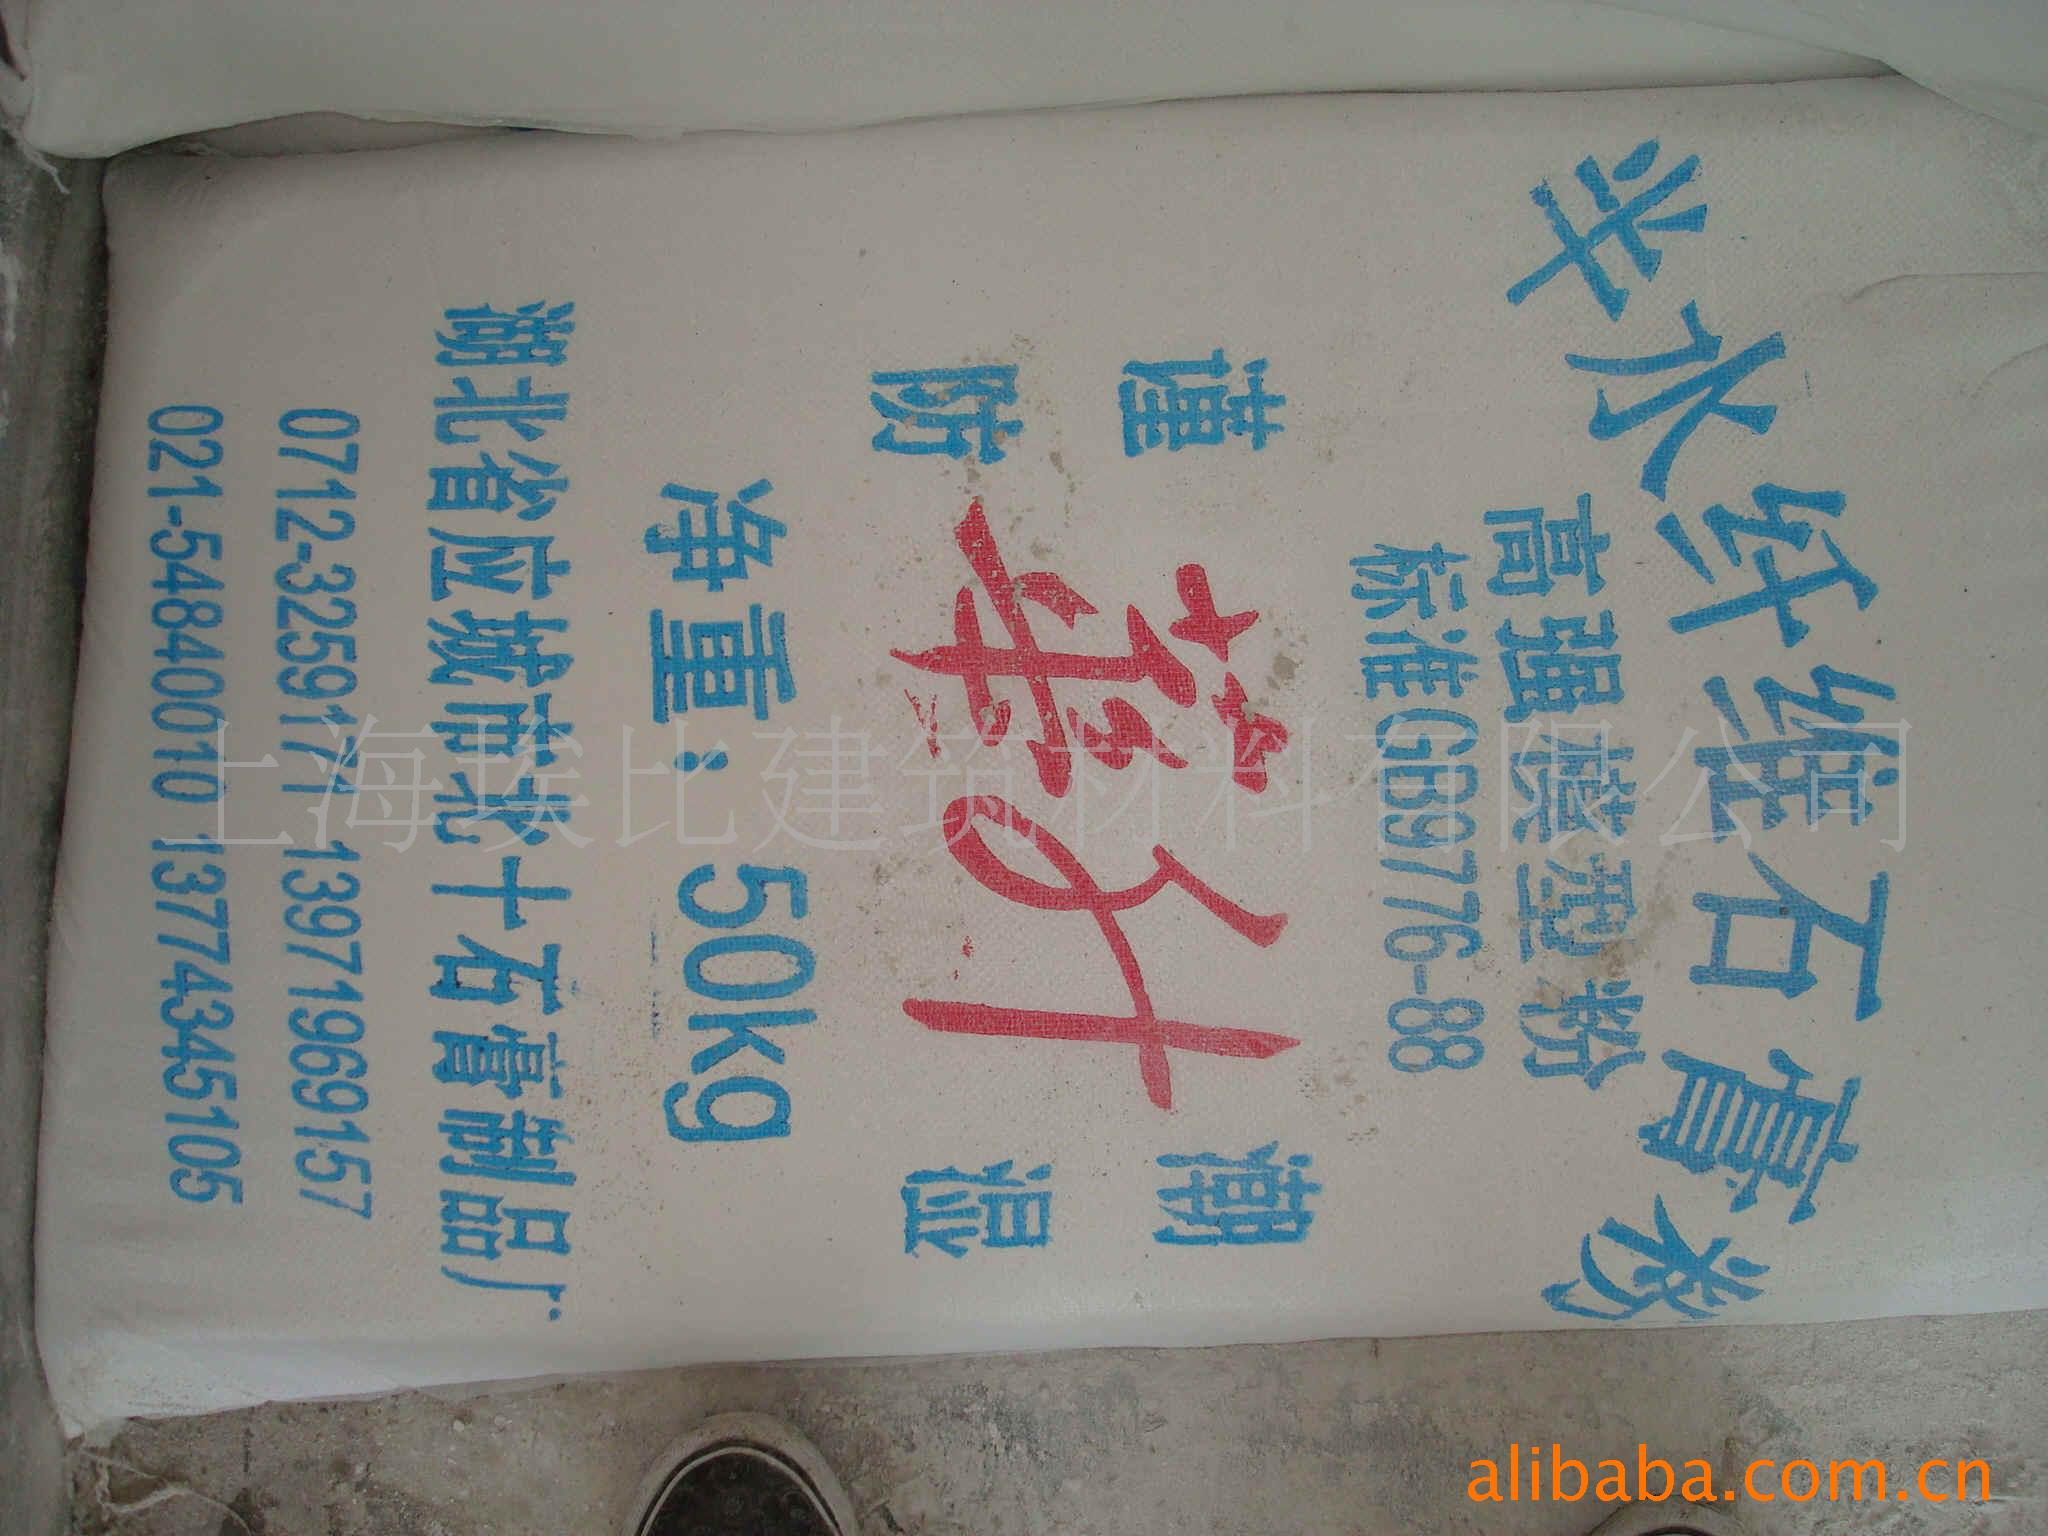 半水纤维石膏粉
高强模型粉
标准GB9776-88
谨 潮
防 湿
净重：50kg
湖北省应城市北十石膏制品厂
0712-3259171 13971969157
021-54840010 13774345105
上海埃比建筑材料有限公司
alibaba.com.cn